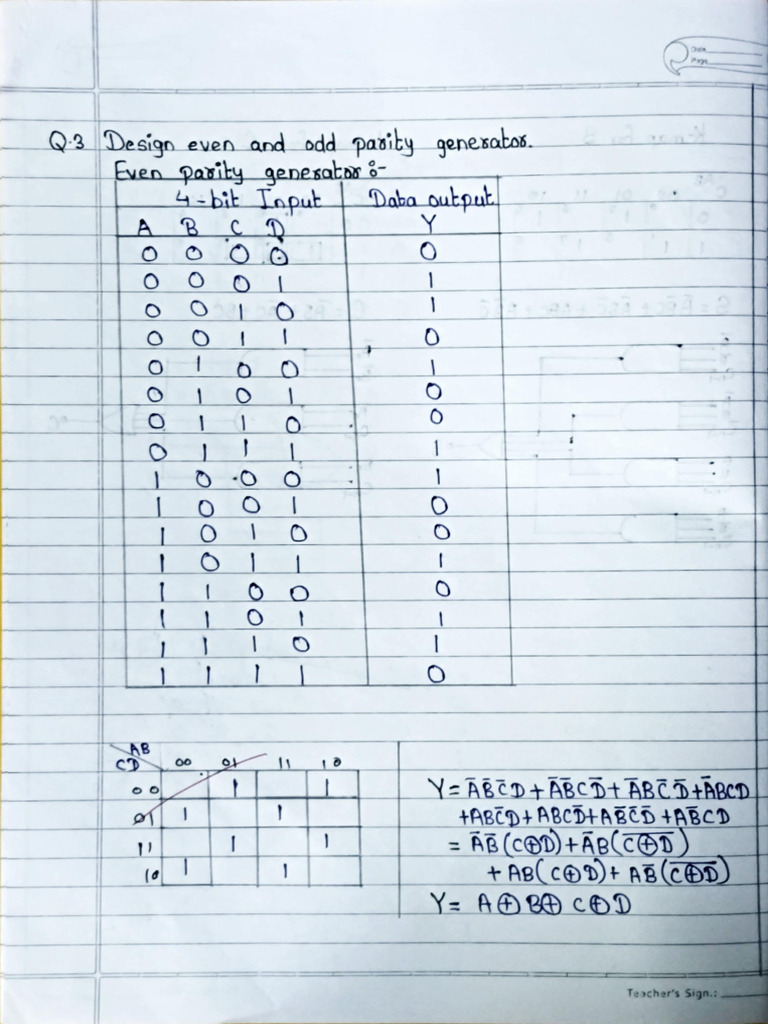 Date
Page
Q.3 Design even and odd parity generator.
Even parity generator :-
4-bit Input Data output
A B C D Y
0 0 0 0 0
0 0 0 1 1
0 0 1 0 1
0 0 1 1 0
0 1 0 0 1
0 1 0 1 0
0 1 1 0 0
0 1 1 1 1
1 0 0 0 1
1 0 0 1 0
1 0 1 0 0
1 0 1 1 1
1 1 0 0 0
1 1 0 1 1
1 1 1 0 1
1 1 1 1 0
AB
CD 00 01 11 10
00 1 1
01 1 1
11 1 1
10 1 1
Y = A̅B̅C̅D + A̅B̅CD̅ + A̅BC̅D̅ + A̅BCD
+ABC̅D + ABCD̅ + AB̅C̅D̅ + AB̅CD
= A̅B̅(C⊕D) + A̅B(C̅⊕̅D̅)
+ AB(C⊕D) + AB̅(C̅⊕̅D̅)
Y = A⊕B⊕C⊕D
Teacher's Sign.: